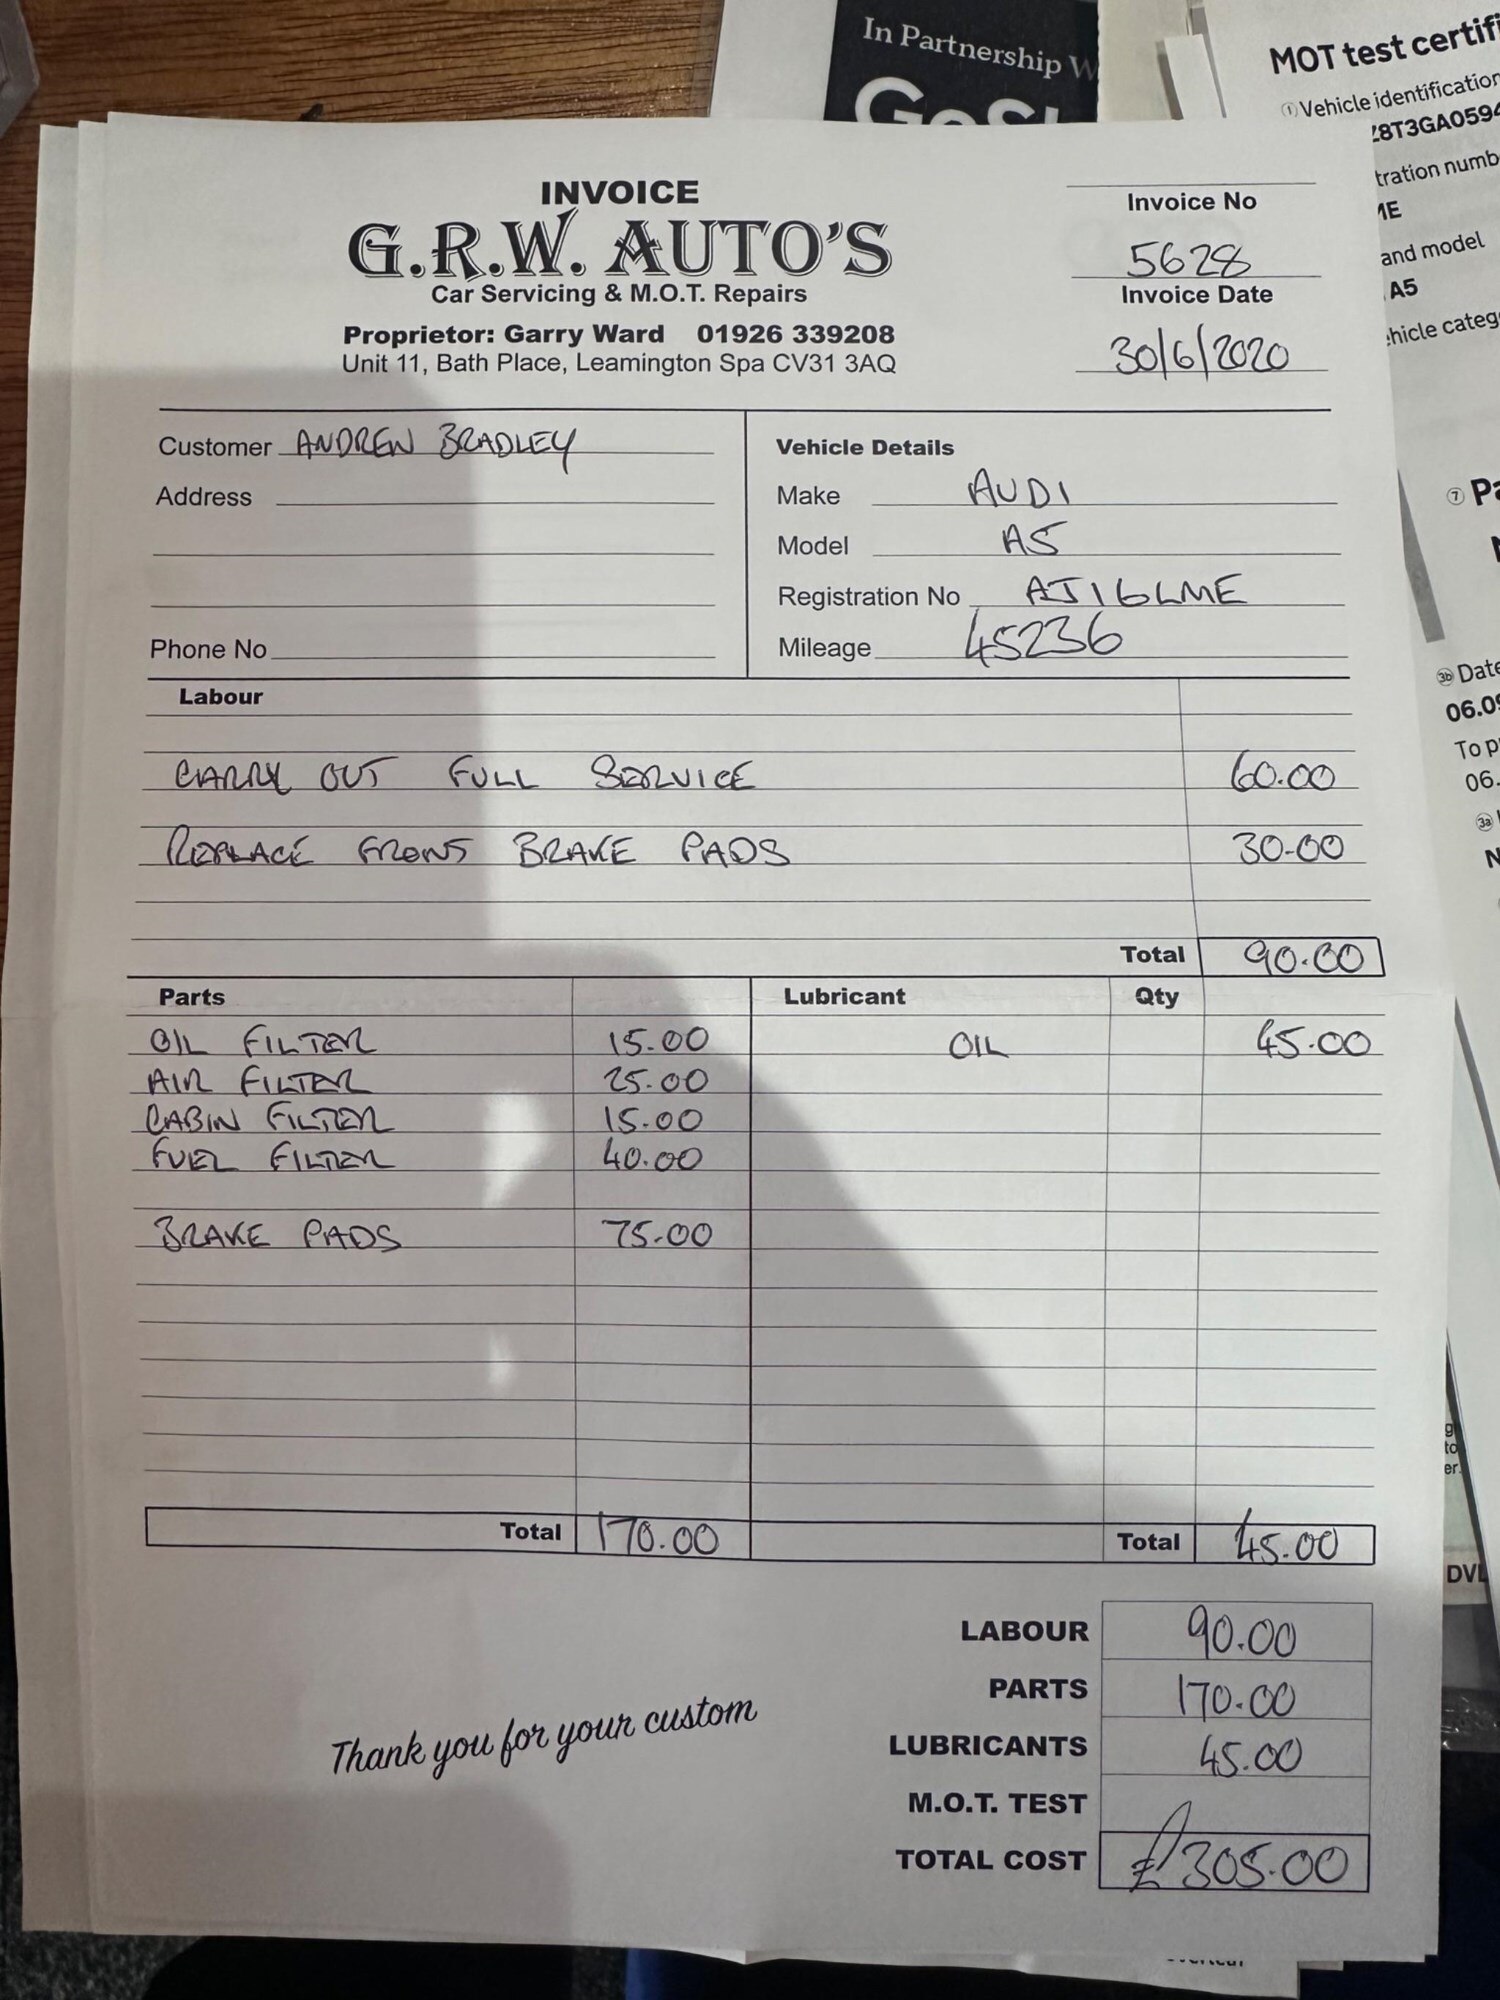 In Partnership W
MOT test certifi
① Vehicle identification
Z8T3GA0594
tration numb
ME
and model
A5
hicle categ
⑦ Pa
3b Date
06.09
To p
06.
3a
INVOICE
G.R.W. AUTO'S
Car Servicing & M.O.T. Repairs
Proprietor: Garry Ward 01926 339208
Unit 11, Bath Place, Leamington Spa CV31 3AQ
Invoice No
5628
Invoice Date
30/6/2020
Customer ANDREW BRADLEY
Address
Phone No
Vehicle Details
Make AUDI
Model A5
Registration No AJ16LME
Mileage 45236
Labour
CARRY OUT FULL SERVICE 60.00
REPLACE FRONT BRAKE PADS 30-00
Total 90.00
Parts Lubricant Qty
OIL FILTER 15.00 OIL 45.00
AIR FILTER 25.00
CABIN FILTER 15.00
FUEL FILTER 40.00
BRAKE PADS 75-00
Total 170.00 Total 45.00
LABOUR 90.00
PARTS 170.00
LUBRICANTS 45.00
M.O.T. TEST
TOTAL COST £305.00
Thank you for your custom
to
er.
DVL